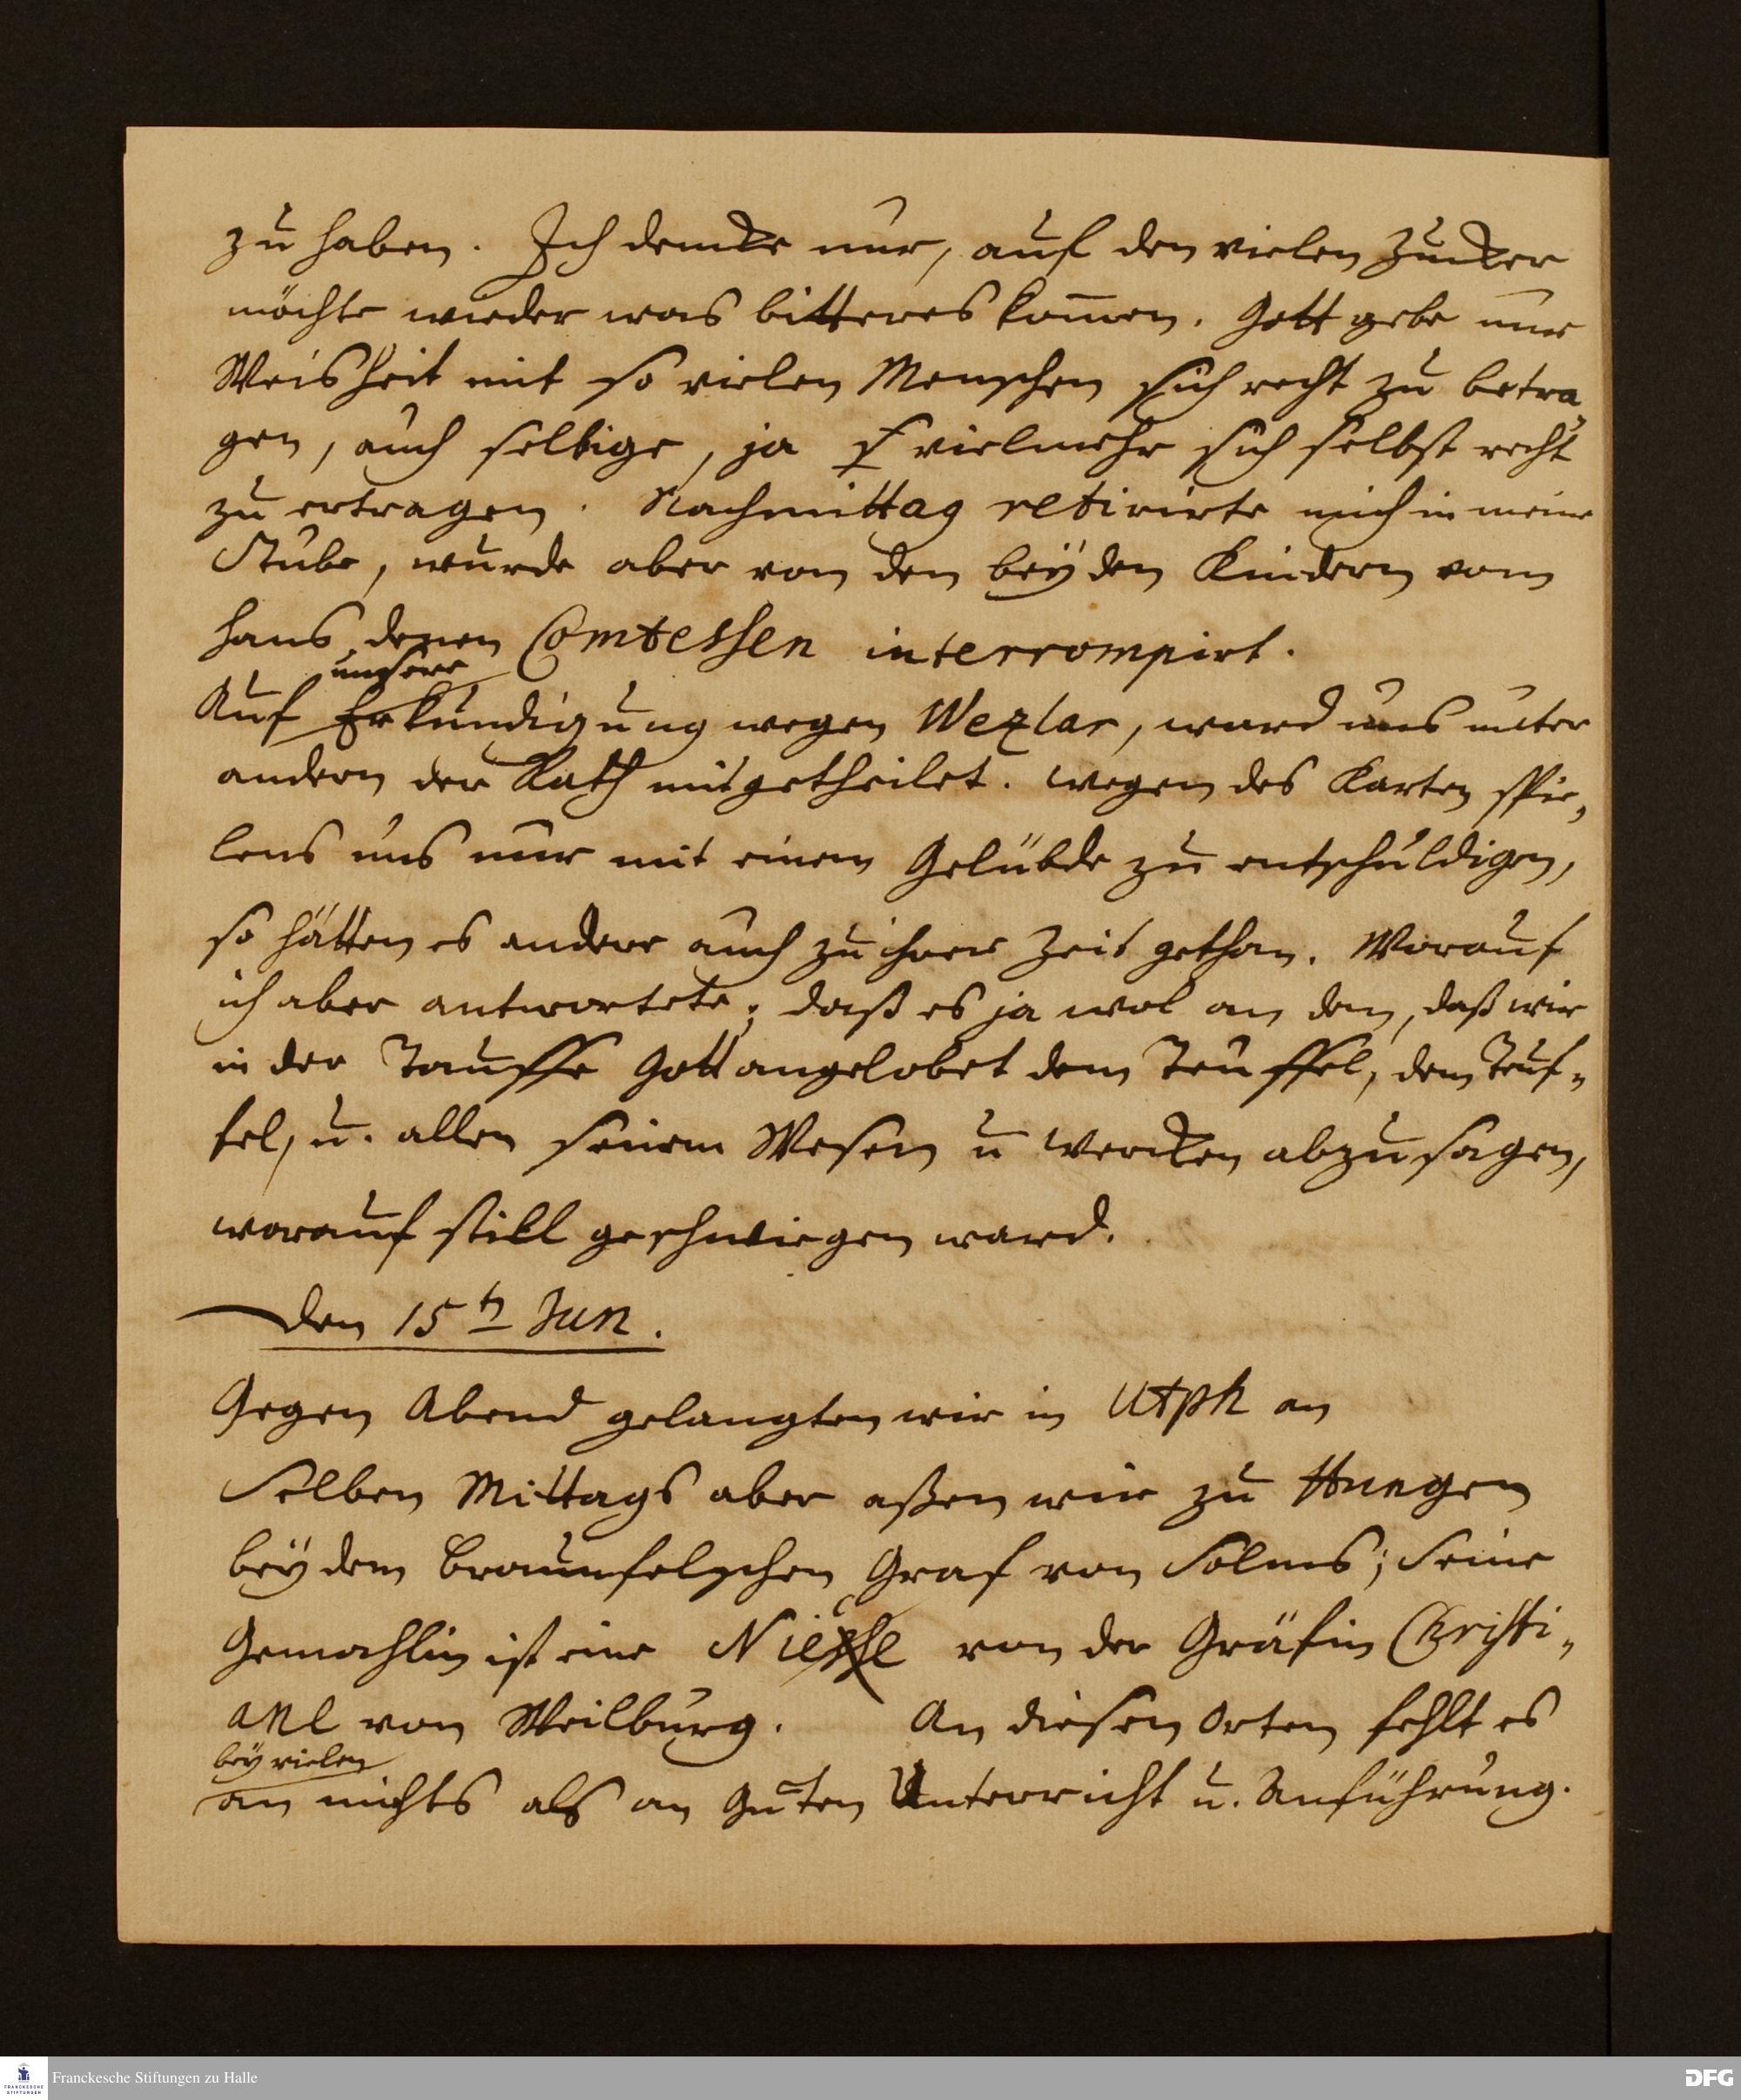 zu haben. Ich dencke nur, auf den vielen Zucker
möchte wieder was bitteres kom̄en. Gott gebe nur
Weisheit mit so vielen Menschen sich recht zu betra„
gen, auch selbige, ja vielmehr sich selbst recht
zu ertragen. Nachmittag retirirte mich in meine
Stube, wurde aber von den beyden Kindern vom
Haus, denen Comtessen interrompirt.
unsere
Auf Erkundigung wegen Wezlar, ward uns unter
andern der Rath mitgetheilet. wegen des Karten spie„
lens uns nur mit einem Gelübde zu entschuldigen,
so hätten es andere auch zu ihrer Zeit gethan. Worauf
ich aber antwortete; daß es ja wol an dem, daß wir
in der Tauffe Gott angelobet dem Teuffel, dem Teuf„
fel, u. allen seinem Wesen u Wercken abzusagen,
worauf still geschwiegen ward.
Den 15tn Jun.
Gegen Abend gelangten wir in Utph an
Selben Mittags aber aßen wir zu Hungen
bey dem Braunfelschen Graf von Solms; Seine
Gemahlin ist eine von der Gräfin Christi„
ane von Weilburg. An diesen Orten fehlt es
bey vielen
an nichts als an Guten Unterricht u. Anführung.
Franckesche Stiftungen zu Halle
FRANCKESCHE STIFTUNGEN
DFG